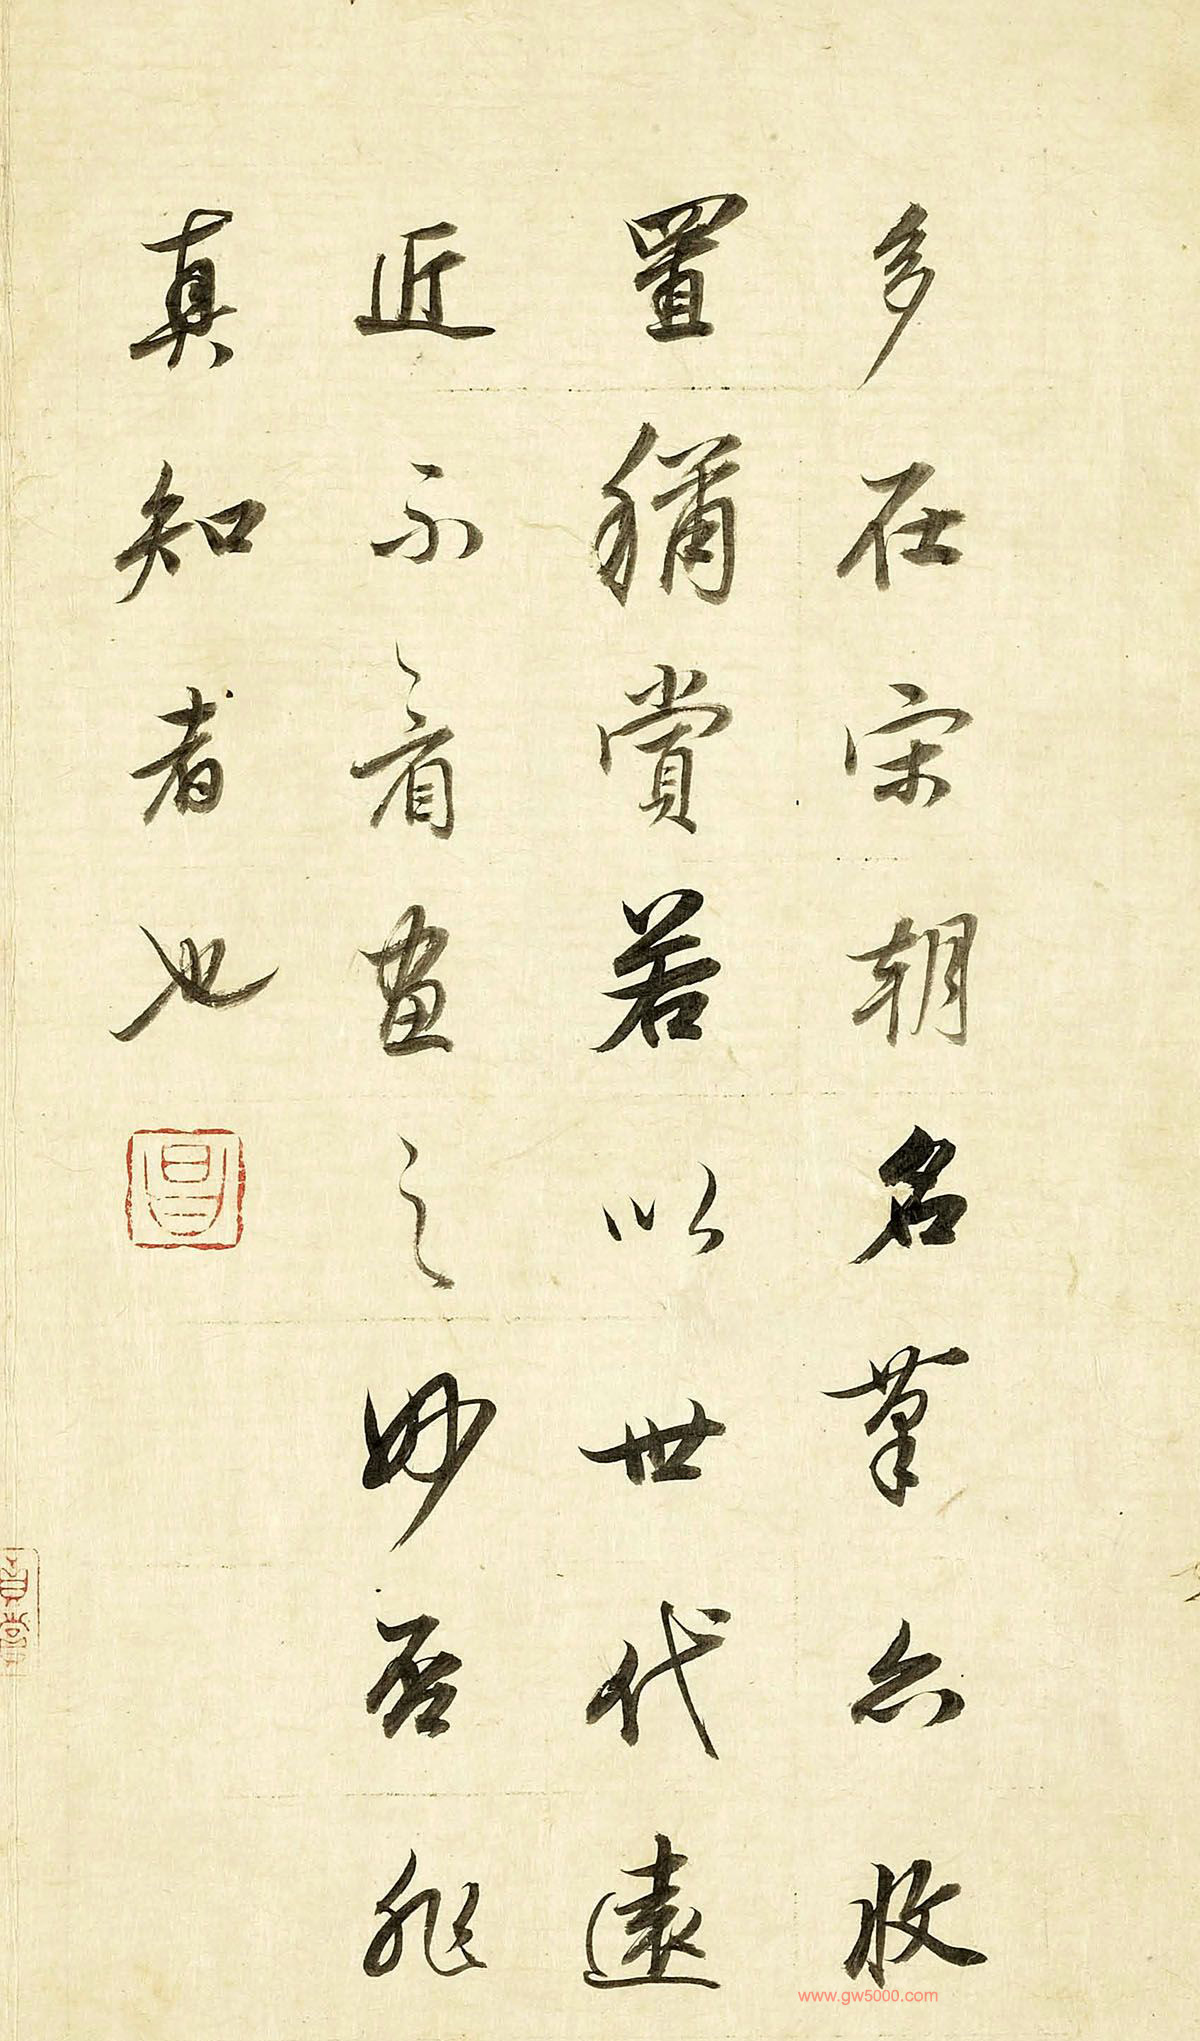 多在宋朝名筆亦收
置稱賞若以世代遠
近不看畫之妙否非
真知者也
昌
www.gw5000.com